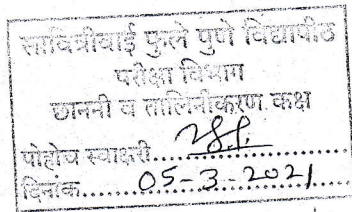 सावित्रीबाई फुले पुणे विद्यापीठ
परीक्षा विभाग
छाननी व तालिनीकरण कक्ष
पोहोच स्वाक्षरी....................
दिनांक......05-3-2021